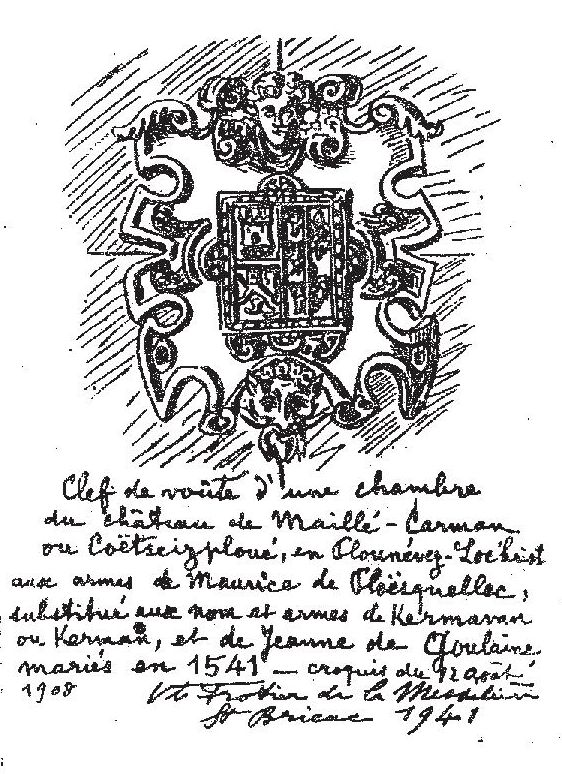 Clef de voûte d'une chambre
du château de Maillé-Carman
ou Coëtseizploué, en Plounévez-Lochrist
aux armes de Maurice de Ploësquellec,
substitué aux nom et armes de Kermavan
ou Kerman, et de Jeanne de Goulaine
mariés en 1541 — croquis du 12 août
1908 Vte Frotier de la Messelière
St Brieuc 1941